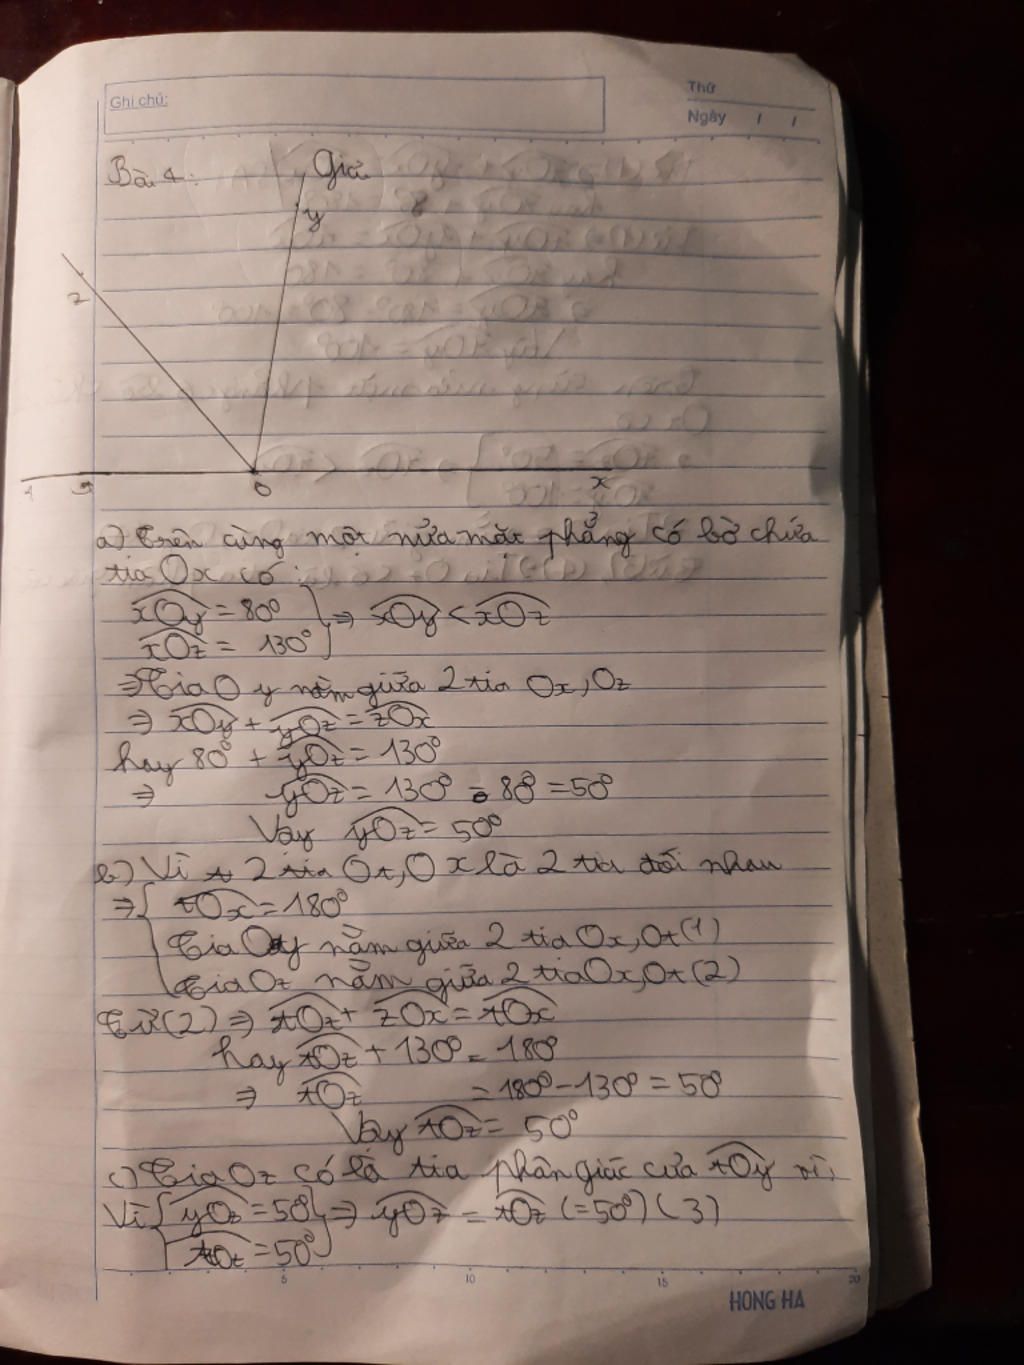 Ghi chú:
Thứ
Ngày / /
Bài 4: Giải
y
z
t
O
x
a) Trên cùng một nửa mặt phẳng có bờ chứa
tia Ox có:
xOy = 80°
xOz = 130°
⇒ xOy < xOz
⇒ Tia Oy nằm giữa 2 tia Ox, Oz
⇒ xOy + yOz = zOx
hay 80° + yOz = 130°
⇒ yOz = 130° - 80° = 50°
Vậy yOz = 50°
b) Vì 2 tia Ot, Ox là 2 tia đối nhau
⇒ { tOx = 180°
Tia Oy nằm giữa 2 tia Ox, Ot (1)
Tia Oz nằm giữa 2 tia Ox, Ot (2)
Từ (2) ⇒ tOz + zOx = tOx
hay tOz + 130° = 180°
⇒ tOz = 180° - 130° = 50°
Vậy tOz = 50°
c) Tia Oz có là tia phân giác của tOy vì:
Vì { yOz = 50° } ⇒ yOz = tOz (= 50°) (3)
tOz = 50°
5 10 15 20
HONG HA